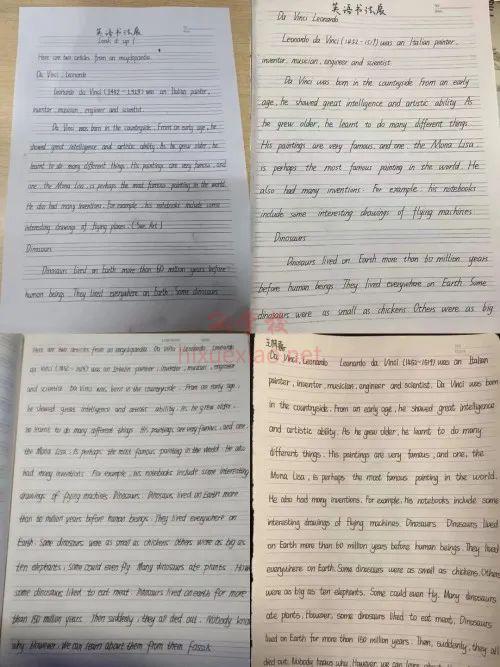 英语书法展
Look it up!
Here are two articles from an encyclopaedia.
Da Vinci, Leonardo
Leonardo da Vinci (1452-1519) was an Italian painter,
inventor, musician, engineer and scientist.
Da Vinci was born in the countryside. From an early age, he
showed great intelligence and artistic ability. As he grew older, he
learnt to do many different things. His paintings are very famous, and
one, the Mona Lisa, is perhaps the most famous painting in the world.
He also had many inventions. For example, his notebooks include some
interesting drawings of flying planes. (See Art)
Dinosaurs
Dinosaurs lived on Earth more than 60 million years before
human beings. They lived everywhere on Earth. Some dinosaurs
英语书法展
Da Vinci Leonardo
Leonardo da Vinci (1452-1519) was an Italian painter,
inventor, musician, engineer and scientist.
Da Vinci was born in the countryside. From an early
age, he showed great intelligence and artistic ability. As
he grew older, he learnt to do many different things.
His paintings are very famous, and one, the Mona Lisa,
is perhaps the most famous painting in the world. He
also had many inventions. For example, his notebooks
include some interesting drawings of flying machines.
Dinosaurs
Dinosaurs lived on Earth more than 60 million years
before human beings. They lived everywhere on Earth. Some
dinosaurs were as small as chickens. Others were as big
Here are two articles from an encyclopaedia. Da Vinci, Leonardo Leonardo
da Vinci (1452-1519) was an Italian painter, inventor, musician, engineer
and scientist. Da Vinci was born in the countryside. From an early age,
he showed years intelligence and artist ability. As he grew older,
he learnt to do many different things. His paintings are very famous, and one,
the Mona Lisa, is perhaps the most famous painting in the world. He also
had many inventions. For example, his notebooks include some interesting
drawings of flying machines. Dinosaurs. Dinosaurs lived on Earth more
than 60 million years before human beings. They lived everywhere on
Earth. Some dinosaurs were as small as chickens. Others were as big as
ten elephants. Some could even fly. Many dinosaurs ate plants. How
some dinosaurs liked to eat meat. Dinosaurs lived on earth for more
than 150 million years. Then suddenly, they all died out. Nobody know
why. However, we can learn about them from them fossils.
Da Vinci, Leonardo Leonardo da Vinci (1452-1519) was an Italian
painter, inventor, musician, engineer and scientist. Da Vinci was born
in the countryside. From an early age, he showed great intelligence
and artistic ability. As he grew older, he learnt to do many
different things. His paintings are very famous, and one, the
Mona Lisa, is perhaps the most famous painting in the world.
He also had many inventions. For example, his notebooks include some
interesting drawings of flying machines. Dinosaurs Dinosaurs lived
on Earth more than 60 million years before human beings. They lived
everywhere on Earth. Some dinosaurs were as small as chickens. Others
were as big as ten elephants. Some could even fly. Many dinosaurs
ate plants. However, some dinosaurs liked to eat meat. Dinosaurs
lived on Earth for more than 150 million years. Then, suddenly, they all
died out. Nobody knows why. However, we can learn about
hixuexiao.net